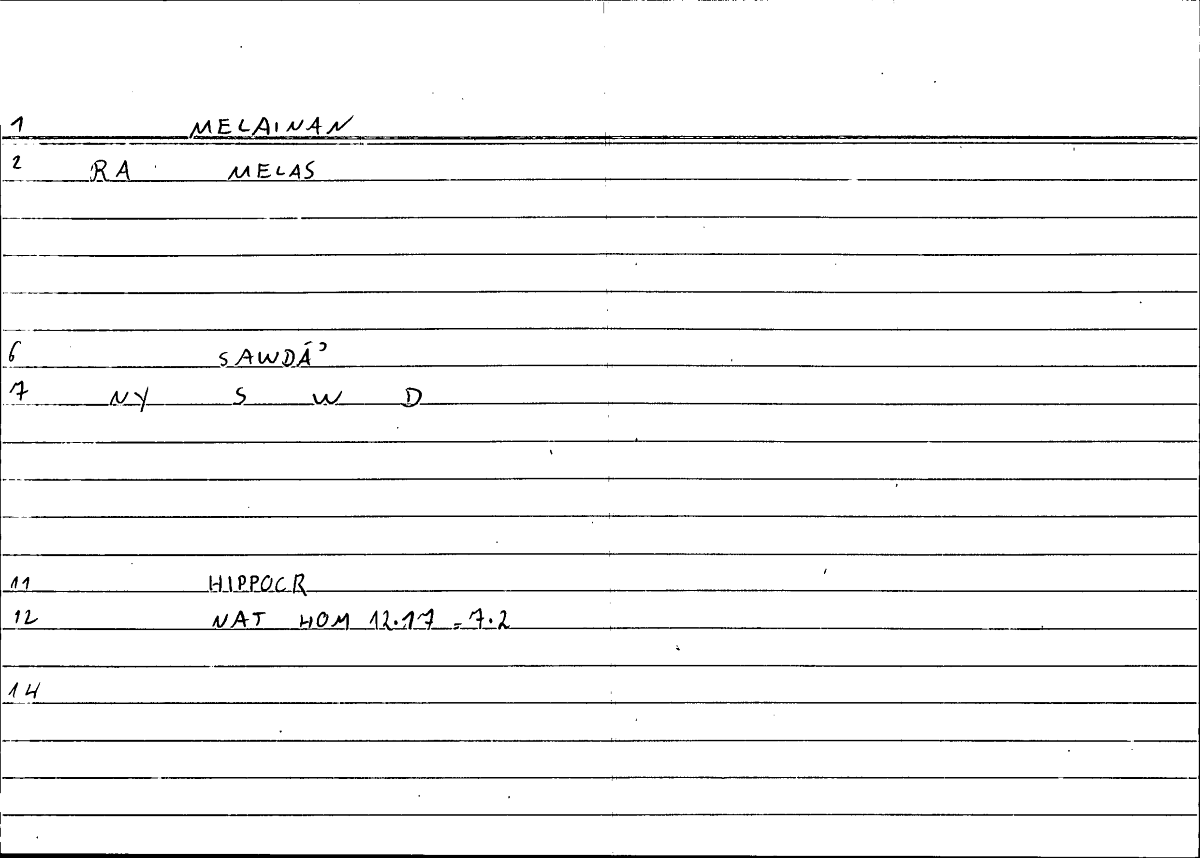 1 MELAINAN
2 RA MELAS
6 SAWDĀʾ
7 NY S W D
11 HIPPOCR
12 NAT HOM 12.17 = 7.2
14